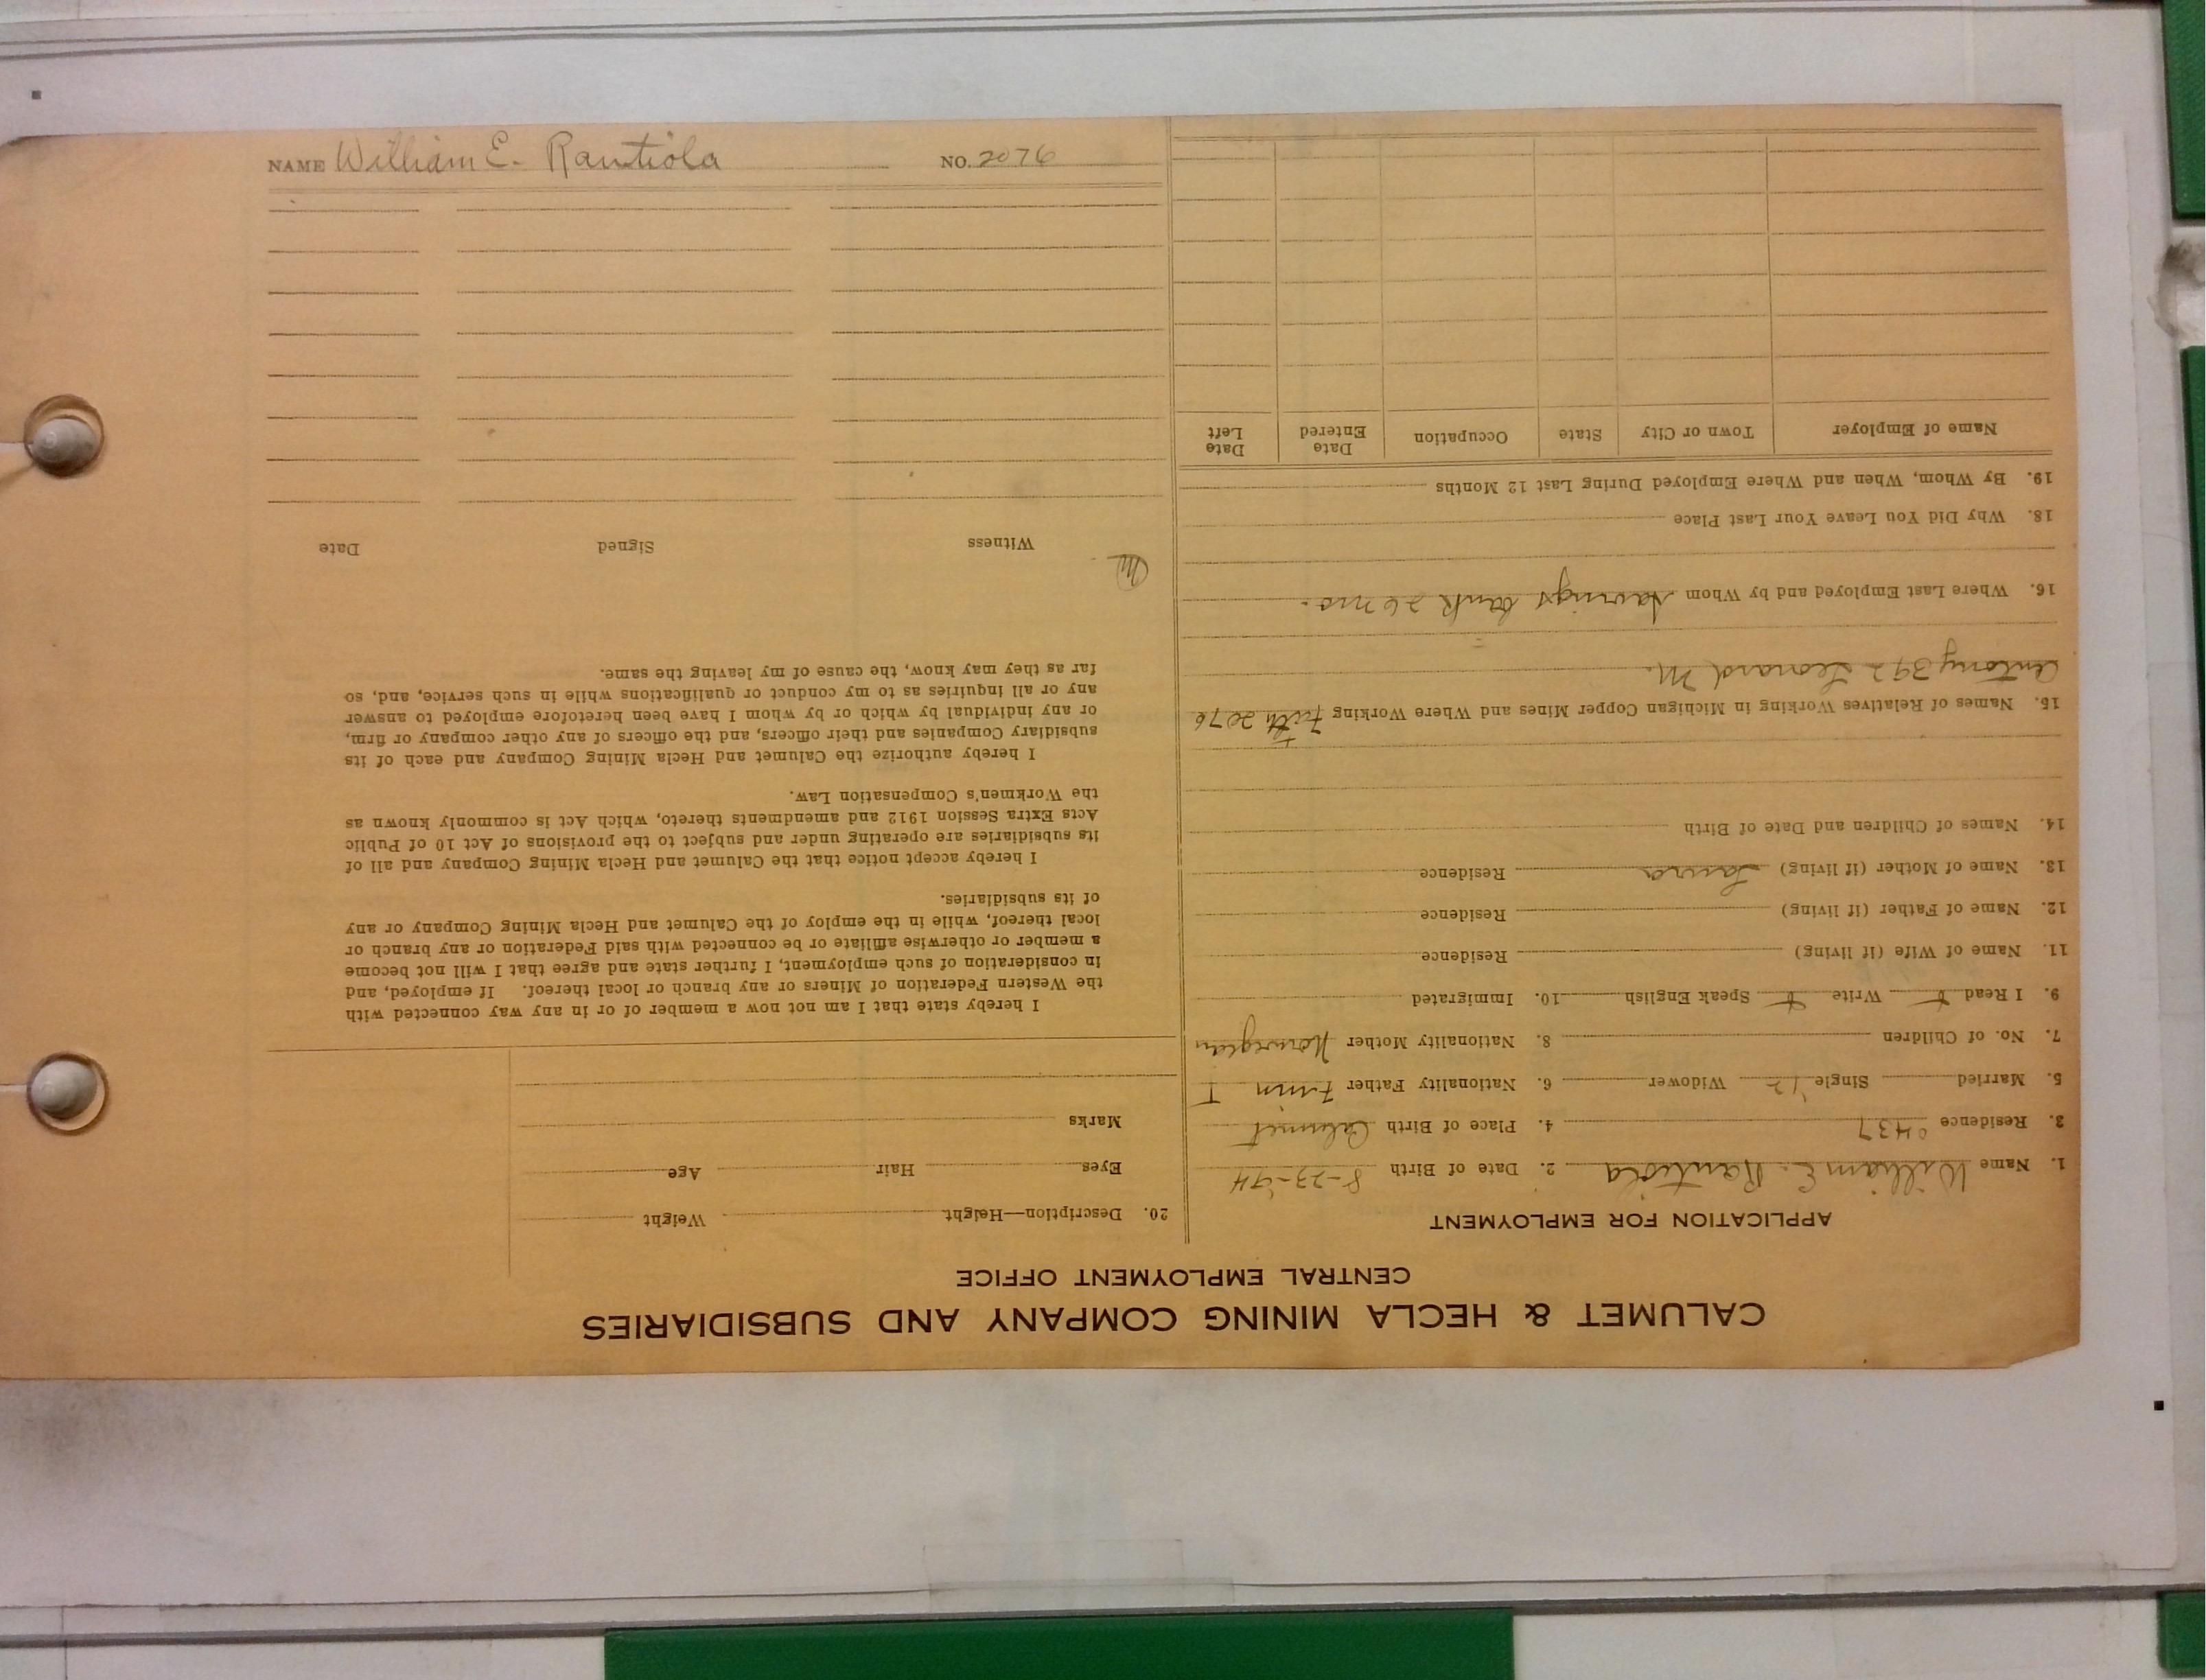 CALUMET & HECLA MINING COMPANY AND SUBSIDIARIES
CENTRAL EMPLOYMENT OFFICE
APPLICATION FOR EMPLOYMENT
1. Name William E. Rantiola 2. Date of Birth 8-23-'94
3. Residence 0437 4. Place of Birth Calumet
5. Married Single Widower 6. Nationality Father Finn
7. No. of Children 8. Nationality Mother Norwegian
9. I Read Write Speak English 10. Immigrated
11. Name of Wife (if living) Residence
12. Name of Father (if living) Residence
13. Name of Mother (if living) Laura Residence
14. Names of Children and Date of Birth
15. Names of Relatives Working in Michigan Copper Mines and Where Working 2076
Antony 392 Leonard M.
16. Where Last Employed and by Whom Savings bank 26 mo.
18. Why Did You Leave Your Last Place
19. By Whom, When and Where Employed During Last 12 Months
Name of Employer Town or City State Occupation Date Entered Date Left
20. Description—Height Weight
Eyes Hair Age
Marks
I hereby state that I am not now a member of or in any way connected with
the Western Federation of Miners or any branch or local thereof. If employed, and
in consideration of such employment, I further state and agree that I will not become
a member or otherwise affiliate or be connected with said Federation or any branch or
local thereof, while in the employ of the Calumet and Hecla Mining Company or any
of its subsidiaries.
I hereby accept notice that the Calumet and Hecla Mining Company and all of
its subsidiaries are operating under and subject to the provisions of Act 10 of Public
Acts Extra Session 1912 and amendments thereto, which Act is commonly known as
the Workmen's Compensation Law.
I hereby authorize the Calumet and Hecla Mining Company and each of its
subsidiary Companies and their officers, and the officers of any other company or firm,
or any individual by which or by whom I have been heretofore employed to answer
any or all inquiries as to my conduct or qualifications while in such service, and, so
far as they may know, the cause of my leaving the same.
Witness Signed Date
NAME William E. Rantiola NO. 2076